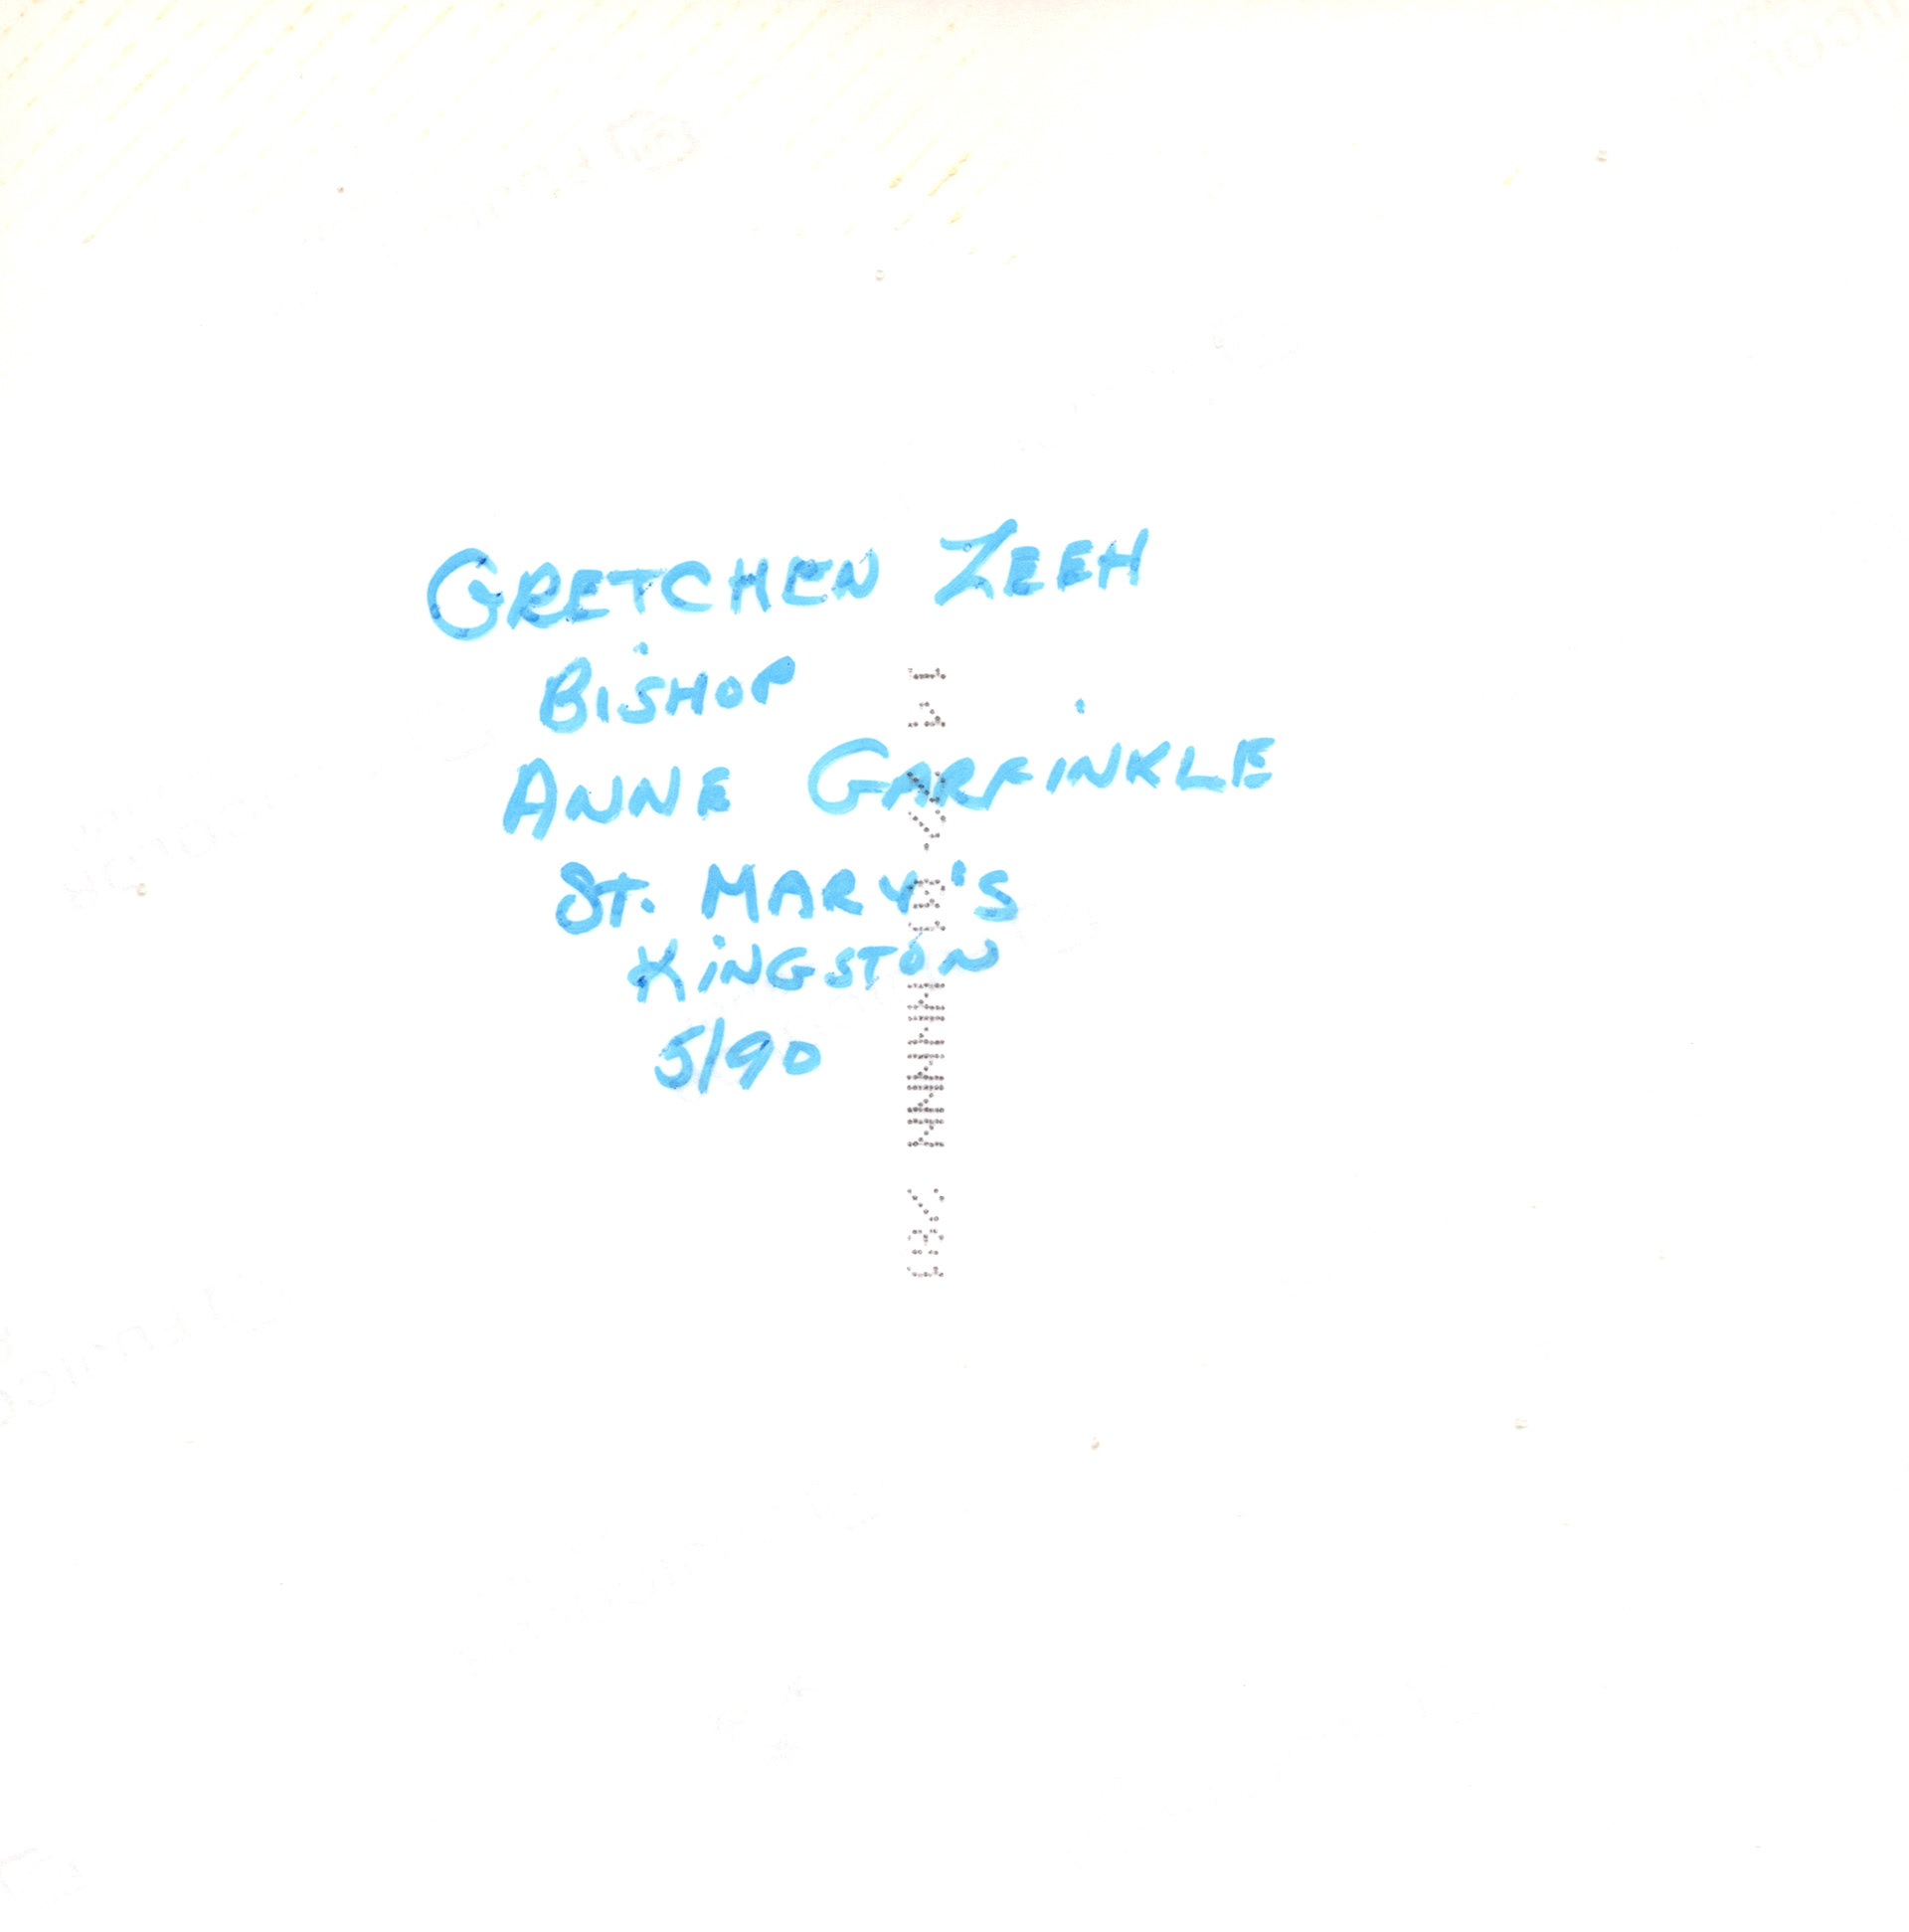 GRETCHEN ZEEH
BISHOP
ANNE GARFINKLE
ST. MARY'S
KINGSTON
5/90